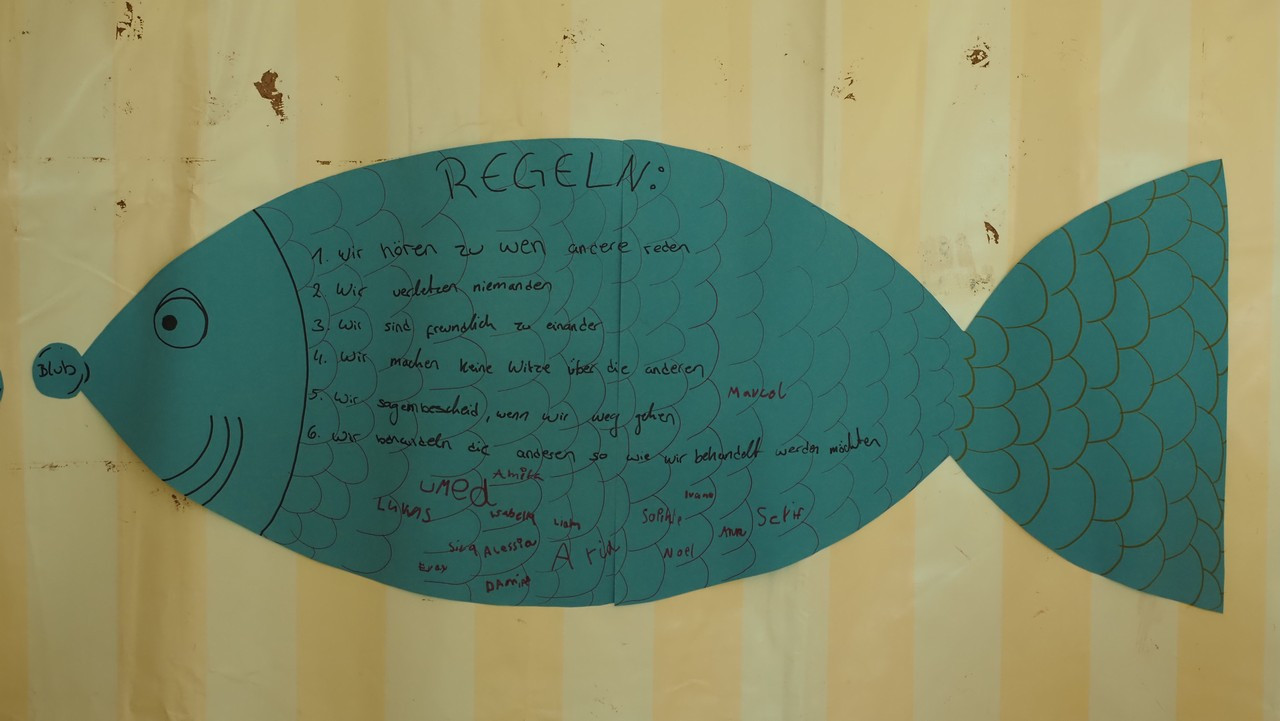 REGELN:
1. Wir hören zu wen andere reden
2. Wir verletzen niemanden
3. Wir sind freundlich zu einander
4. Wir machen keine Witze über die anderen
5. Wir sagen bescheid, wenn wir weg gehen
6. Wir behandeln die anderen so wie wir behandelt werden möchten
Blub
Marcol
Umed
Lukas
Isabella
Liam
Sophie
Ivano
Ann
Noel
Alessia
Arin
Eray